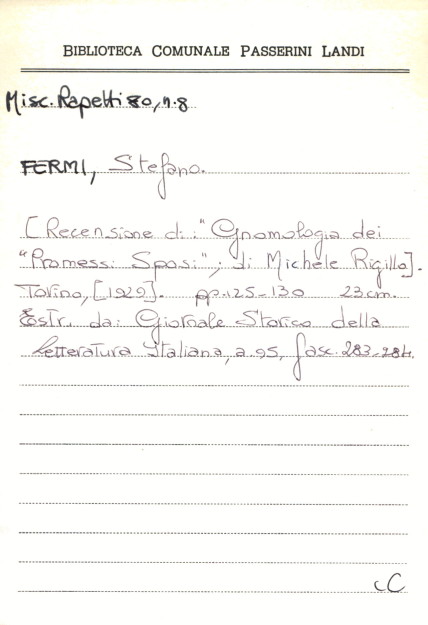 BIBLIOTECA COMUNALE PASSERINI LANDI
Misc. Rapetti 80, n. 8
FERMI, Stefano.
[Recensione di: "Gnomologia dei
"Promessi Sposi"; di Michele Rigillo].
Torino, [1929]. pp. 125-130 23 cm.
Estr. da: Giornale Storico della
letteratura Italiana, a. 95, fasc. 283-284.
cC